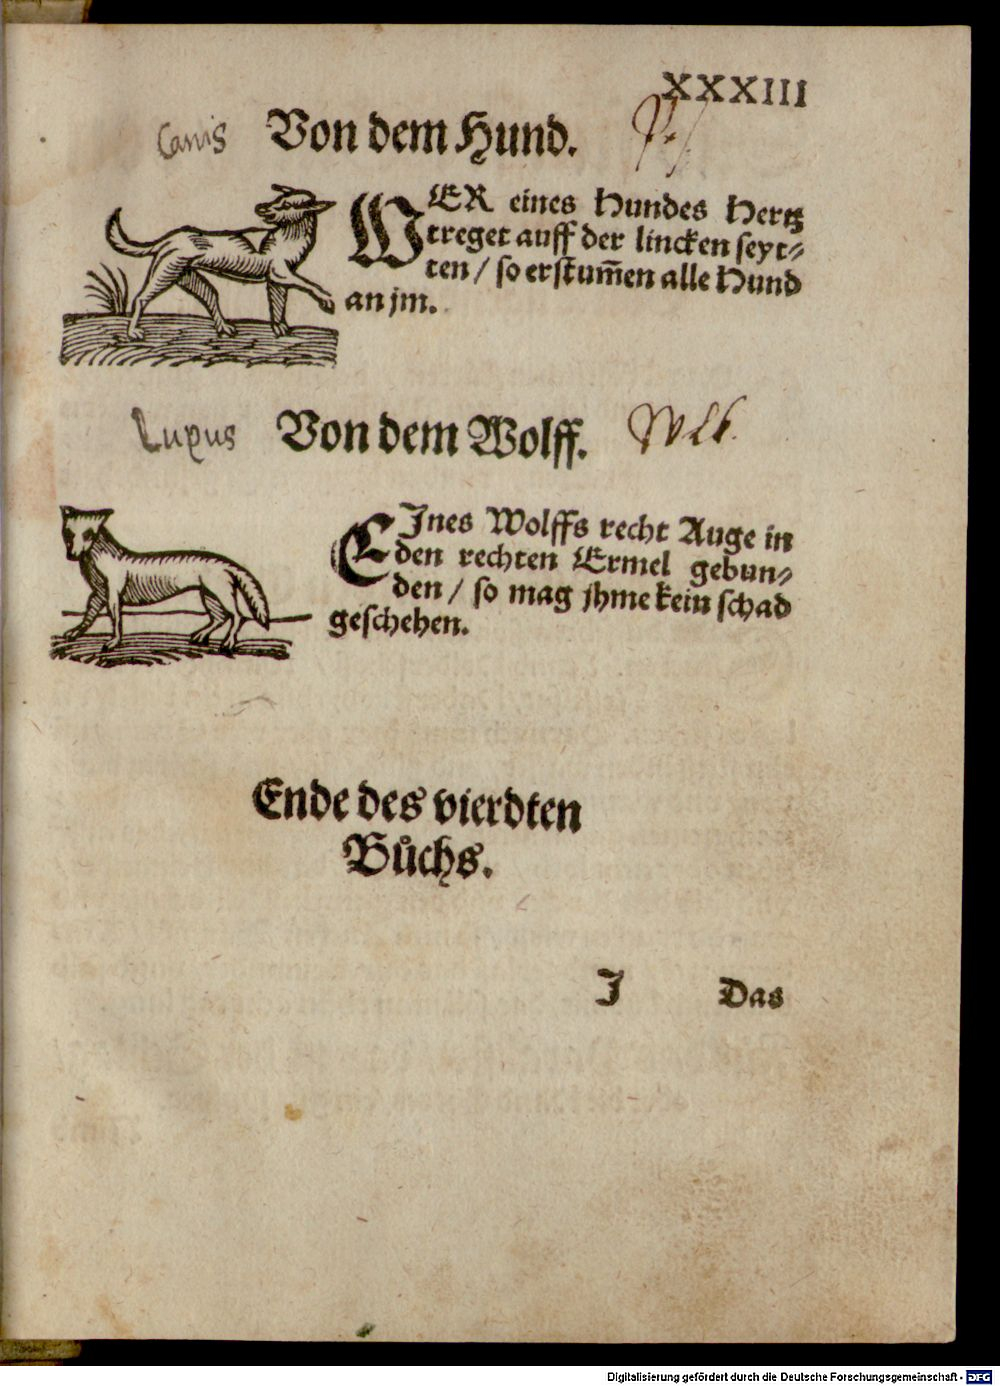 XXXIII
Canis Von dem Hund.
WER eines Hundes Hertz
treget auff der lincken seyt-
ten / so erstum̃en alle Hund
an jm.
Lupus Von dem Wolff.
EInes Wolffs recht Auge in
den rechten Ermel gebun-
den / so mag jhme kein schad
geschehen.
Ende des vierdten
Bůchs.
J Das
Digitalisierung gefördert durch die Deutsche Forschungsgemeinschaft - DFG